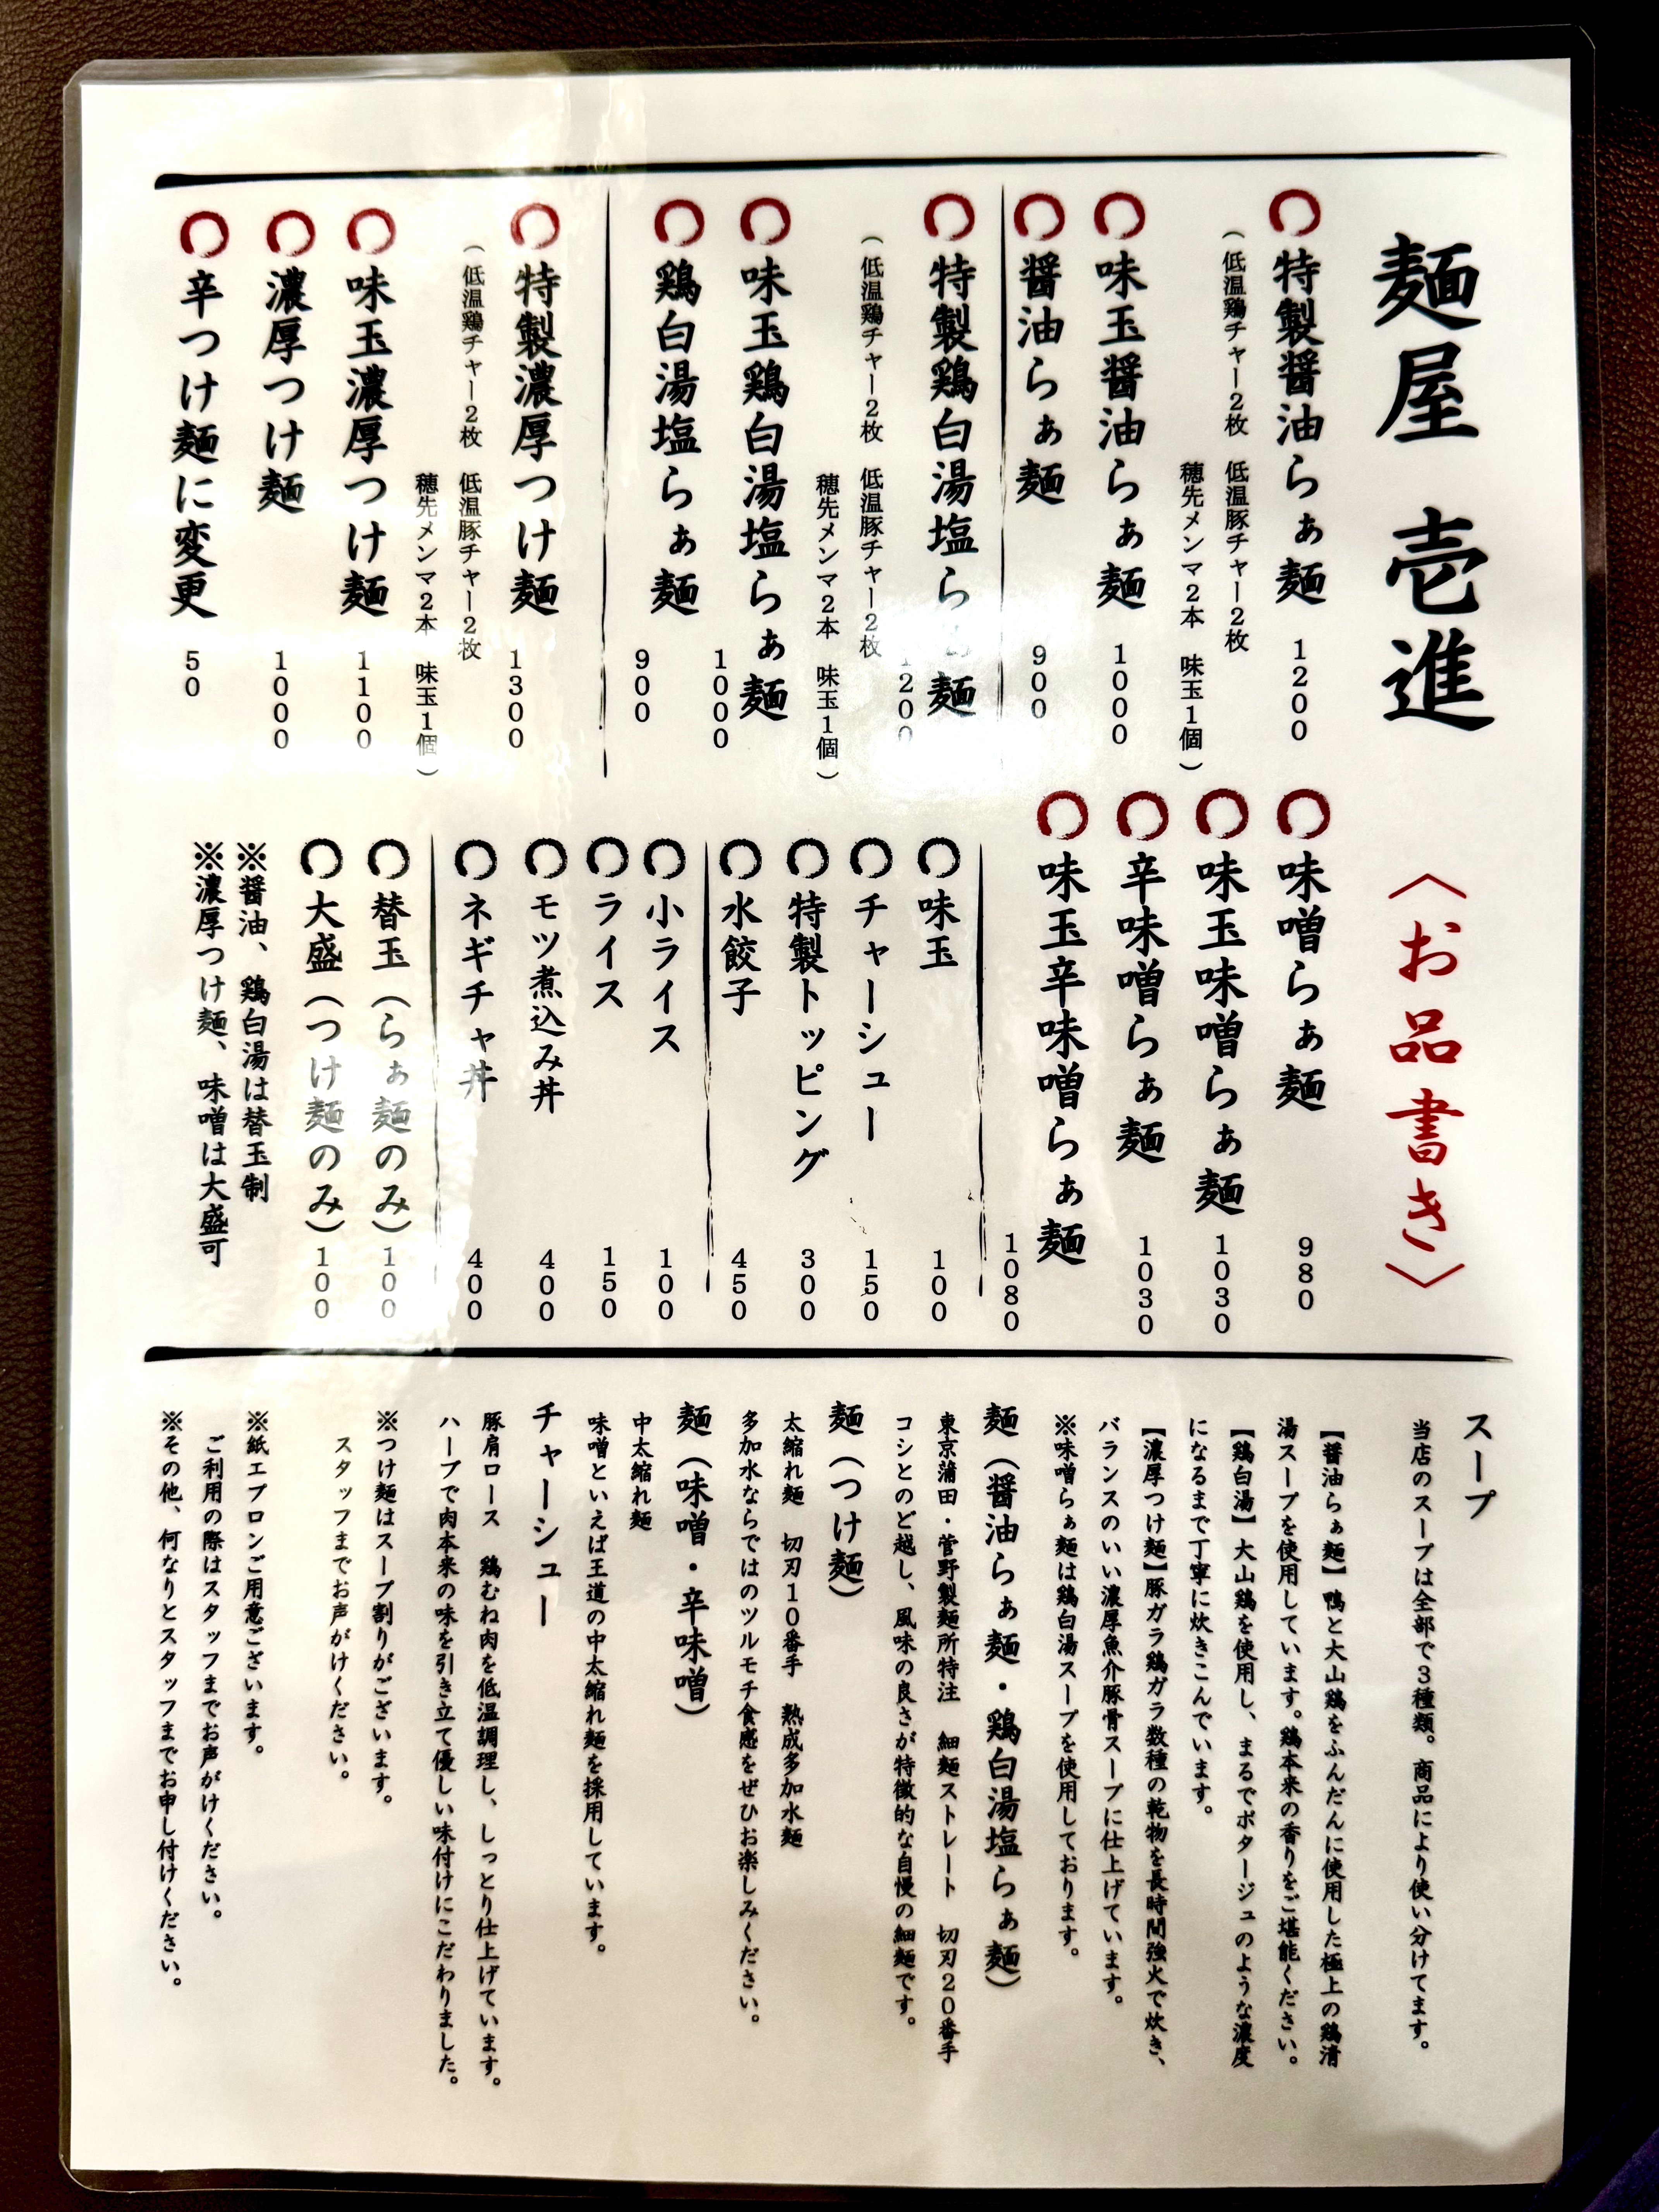 麺屋 壱進
〈お品書き〉
特製醤油らぁ麺 1200
（低温鶏チャー2枚 低温豚チャー2枚
穂先メンマ2本 味玉1個）
味玉醤油らぁ麺 1000
醤油らぁ麺 900
特製鶏白湯塩らぁ麺 1200
（低温鶏チャー2枚 低温豚チャー2枚
穂先メンマ2本 味玉1個）
味玉鶏白湯塩らぁ麺 1000
鶏白湯塩らぁ麺 900
特製濃厚つけ麺 1300
（低温鶏チャー2枚 低温豚チャー2枚
穂先メンマ2本 味玉1個）
味玉濃厚つけ麺 1100
濃厚つけ麺 1000
辛つけ麺に変更 50
味噌らぁ麺 980
味玉味噌らぁ麺 1030
辛味噌らぁ麺 1030
味玉辛味噌らぁ麺 1080
味玉 100
チャーシュー 150
特製トッピング 300
水餃子 450
小ライス 100
ライス 150
モツ煮込み丼 400
ネギチャ丼 400
替玉（らぁ麺のみ）100
大盛（つけ麺のみ）100
※醤油、鶏白湯は替玉制
※濃厚つけ麺、味噌は大盛可
スープ
当店のスープは全部で3種類。商品により使い分けてます。
【醤油らぁ麺】鴨と大山鶏をふんだんに使用した極上の鶏清
湯スープを使用しています。鶏本来の香りをご堪能ください。
【鶏白湯】大山鶏を使用し、まるでポタージュのような濃度
になるまで丁寧に炊きこんでいます。
【濃厚つけ麺】豚ガラ鶏ガラ数種の乾物を長時間強火で炊き、
バランスのいい濃厚魚介豚骨スープに仕上げています。
※味噌らぁ麺は鶏白湯スープを使用しております。
麺（醤油らぁ麺・鶏白湯塩らぁ麺）
東京蒲田・菅野製麺所特注 細麺ストレート 切刃20番手
コシとのど越し、風味の良さが特徴的な自慢の細麺です。
麺（つけ麺）
太縮れ麺 切刃10番手 熟成多加水麺
多加水ならではのツルモチ食感をぜひお楽しみください。
麺（味噌・辛味噌）
中太縮れ麺
味噌といえば王道の中太縮れ麺を採用しています。
チャーシュー
豚肩ロース 鶏むね肉を低温調理し、しっとり仕上げています。
ハーブで肉本来の味を引き立て優しい味付けにこだわりました。
※つけ麺はスープ割りがございます。
スタッフまでお声がけください。
※紙エプロンご用意ございます。
ご利用の際はスタッフまでお声がけください。
※その他、何なりとスタッフまでお申し付けください。